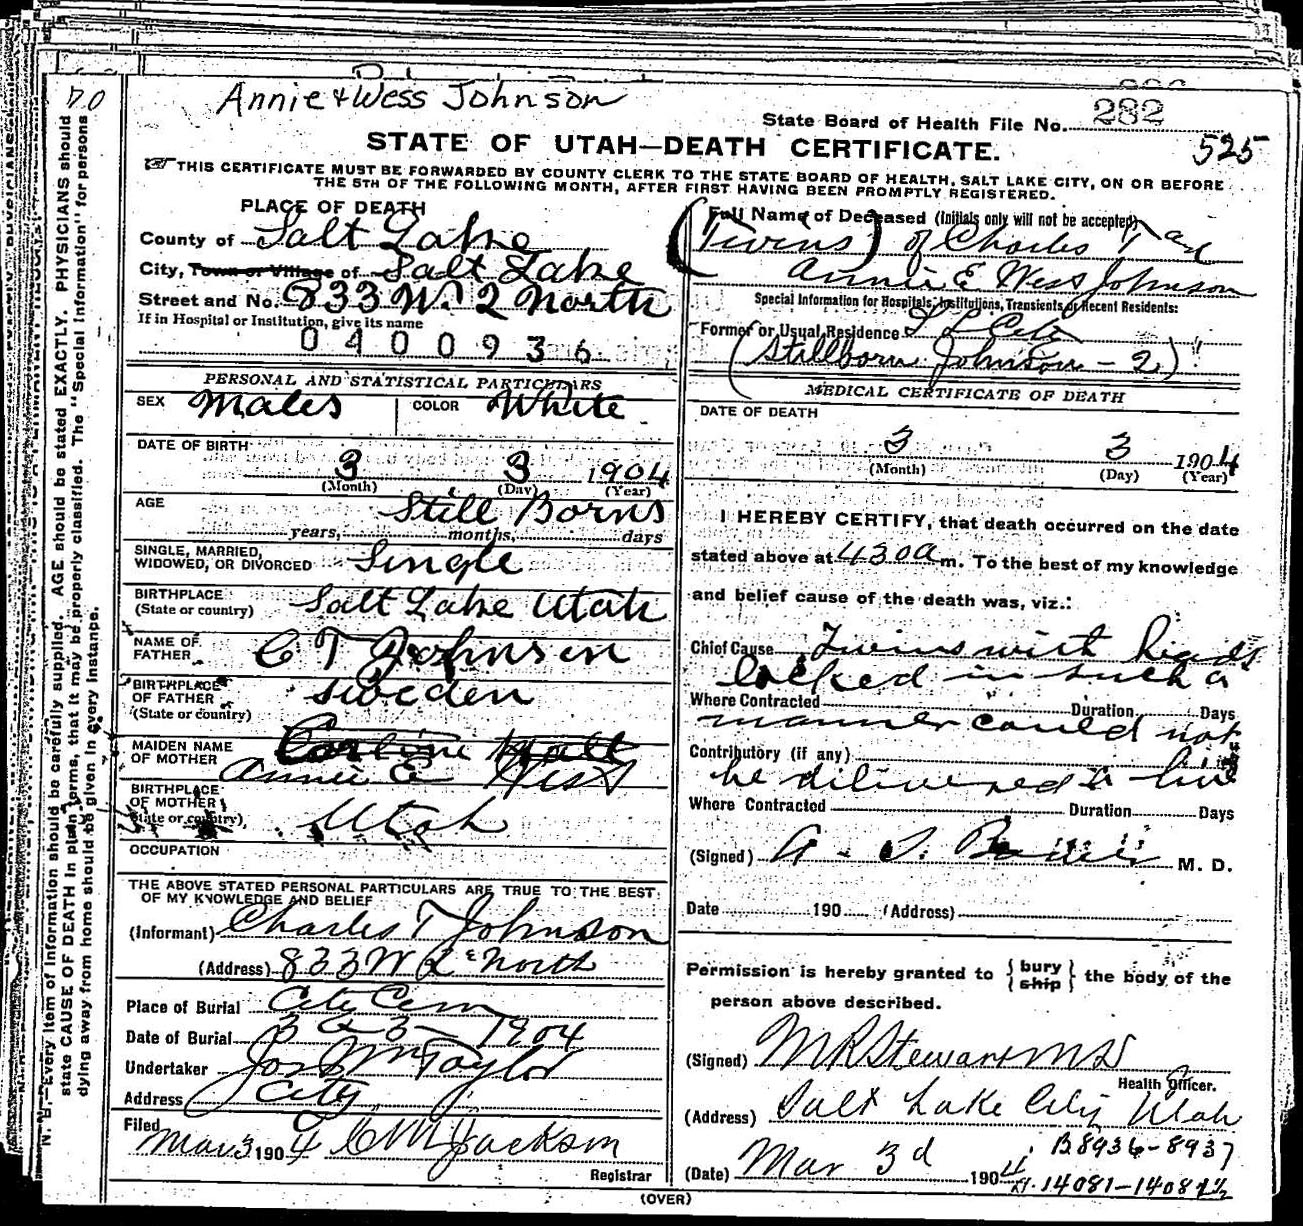 70
Annie & Wess Johnson
State Board of Health File No. 282
525
STATE OF UTAH—DEATH CERTIFICATE.
THIS CERTIFICATE MUST BE FORWARDED BY COUNTY CLERK TO THE STATE BOARD OF HEALTH, SALT LAKE CITY, ON OR BEFORE
THE 5TH OF THE FOLLOWING MONTH, AFTER FIRST HAVING BEEN PROMPTLY REGISTERED.
PLACE OF DEATH
County of Salt Lake
City, Town or Village of Salt Lake
Street and No. 833 W. 2 North
If in Hospital or Institution, give its name
0400936
Full Name of Deceased (Initials only will not be accepted)
(Twins) of Charles T and
Annie E West Johnson
Special Information for Hospitals, Institutions, Transients or Recent Residents:
Former or Usual Residence S L City
(Stillborn Johnson - 2)
PERSONAL AND STATISTICAL PARTICULARS
SEX Males COLOR White
DATE OF BIRTH
3 3 1904
(Month) (Day) (Year)
AGE Still Borns
years, months, days
SINGLE, MARRIED,
WIDOWED, OR DIVORCED Single
BIRTHPLACE
(State or country) Salt Lake Utah
NAME OF
FATHER C T Johnson
BIRTHPLACE
OF FATHER Sweden
(State or country)
MAIDEN NAME
OF MOTHER
Annie E West
BIRTHPLACE
OF MOTHER Utah
(State or country)
OCCUPATION
THE ABOVE STATED PERSONAL PARTICULARS ARE TRUE TO THE BEST
OF MY KNOWLEDGE AND BELIEF
(Informant) Charles T Johnson
(Address) 833 W 2 North
Place of Burial City Cem
Date of Burial 3 3 - 1904
Undertaker Jos Wm Taylor
Address City
Filed
Mar 3 1904 Jackson
Registrar
MEDICAL CERTIFICATE OF DEATH
DATE OF DEATH
3 3 1904
(Month) (Day) (Year)
I HEREBY CERTIFY, that death occurred on the date
stated above at 430 a m. To the best of my knowledge
and belief cause of the death was, viz.:
Chief Cause Twins with heads
locked in such a
Where Contracted Duration Days
manner could not
Contributory (if any)
be delivered a live
Where Contracted Duration Days
(Signed) M. D.
Date 190 (Address)
Permission is hereby granted to { bury ship } the body of the
person above described.
(Signed) M R Stewart M D
Health Officer.
(Address) Salt Lake City Utah
B8936-8937
(Date) Mar 3d 1904
14081-14081½
(OVER)
N. B.—Every item of information should be carefully supplied. AGE should be stated EXACTLY. PHYSICIANS should
state CAUSE OF DEATH in plain terms, that it may be properly classified. The "Special Information" for persons
dying away from home should be given in every instance.